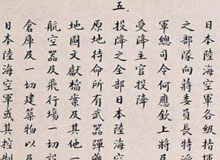 日本陸海空軍各級指
之部隊向蔣委員長特
軍總司令何應欽上將及
受降主官投降
五、投降之全部日本陸海
原地待命所有武器彈藥
地圖文獻檔案及其他一
航空器及飛行場一切
倉庫及一切建築物以
日本陸海空軍或其控制